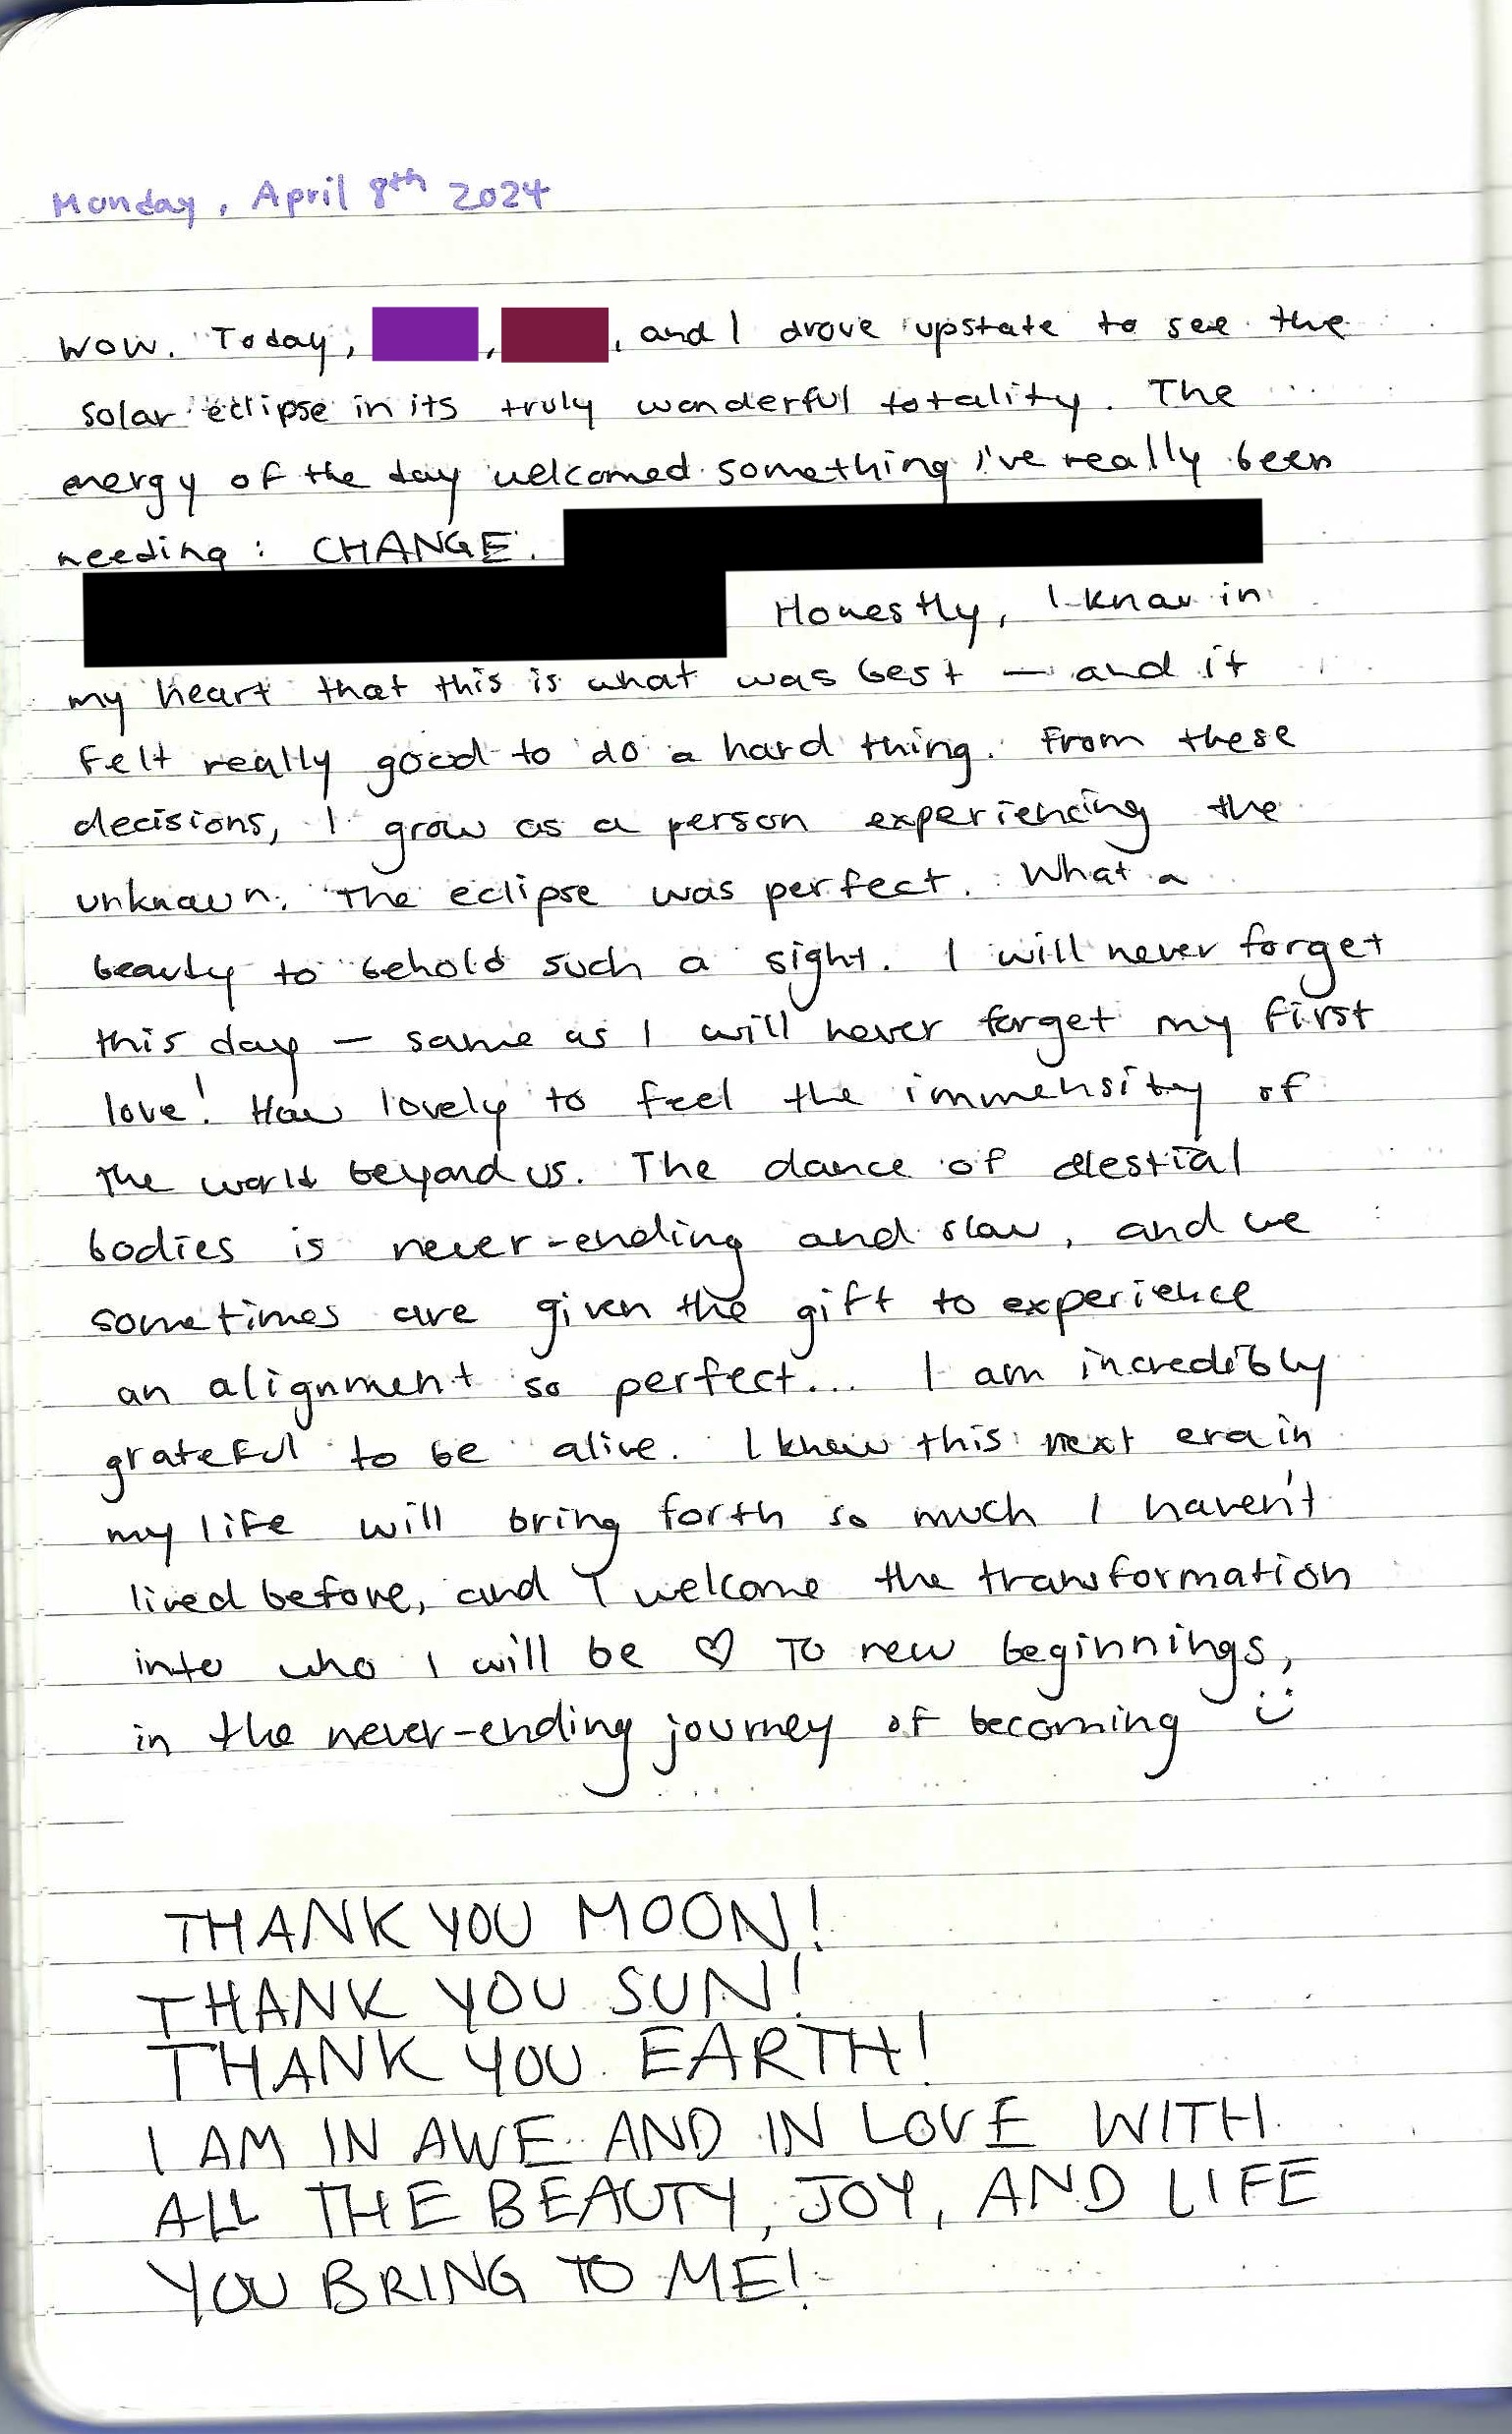 Monday, April 8th 2024
Wow. Today, , , and I drove upstate to see the
solar eclipse in its truly wonderful totality. The
energy of the day welcomed something I've really been
needing: CHANGE.
Honestly, I know in
my heart that this is what was best — and it
felt really good to do a hard thing. From these
decisions, I grow as a person experiencing the
unknown. The eclipse was perfect. What a
beauty to behold such a sight. I will never forget
this day — same as I will never forget my first
love! How lovely to feel the immensity of
the world beyond us. The dance of celestial
bodies is never-ending and slow, and we
sometimes are given the gift to experience
an alignment so perfect... I am incredibly
grateful to be alive. I know this next era in
my life will bring forth so much I haven't
lived before, and I welcome the transformation
into who I will be ♡ To new beginnings,
in the never-ending journey of becoming :)
THANK YOU MOON!
THANK YOU SUN!
THANK YOU EARTH!
I AM IN AWE AND IN LOVE WITH
ALL THE BEAUTY, JOY, AND LIFE
YOU BRING TO ME!